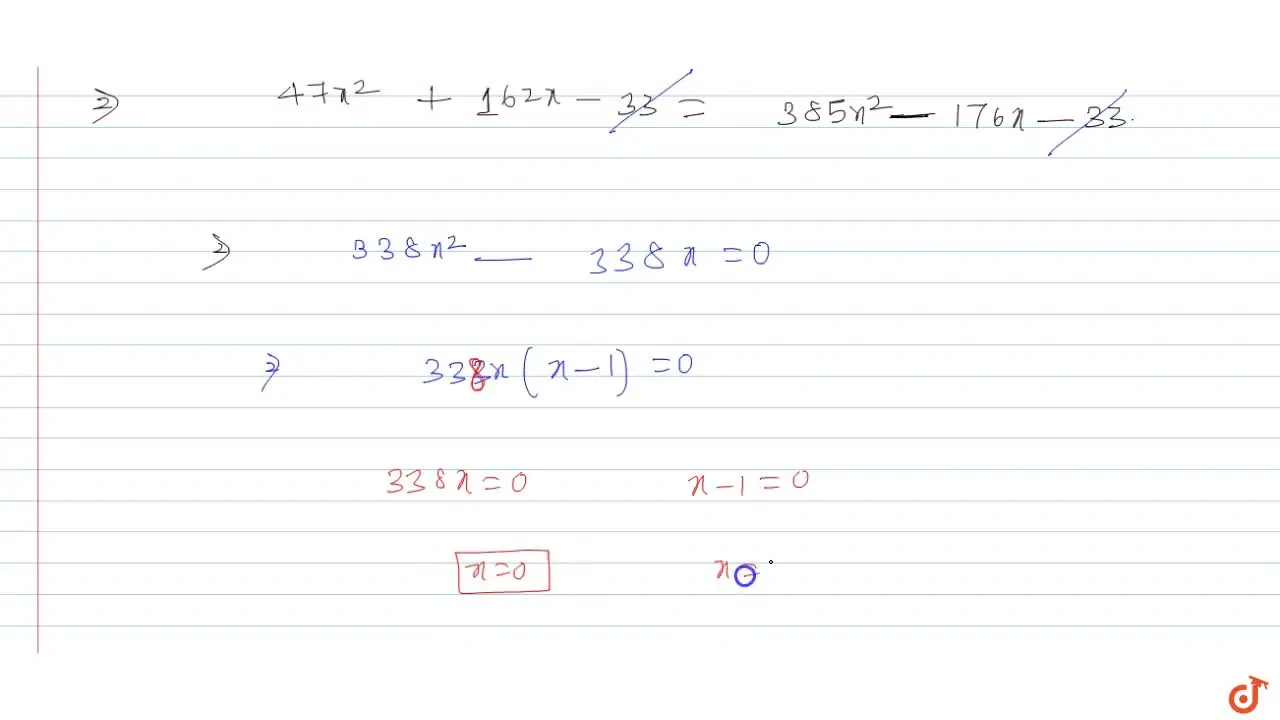 ⇒ 47x² + 162x - 33 = 385x² - 176x - 33.
⇒ 338x² - 338x = 0
⇒ 338x (x - 1) = 0
338x = 0 x - 1 = 0
x = 0 x =